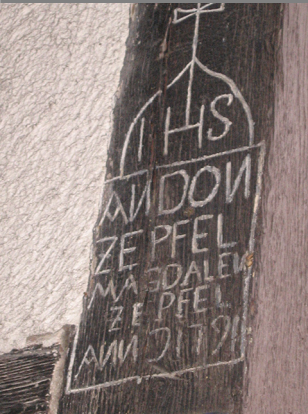 IHS
ANDON
ZEPFEL
MAGDALEN
ZEPFEL
ANN 9179